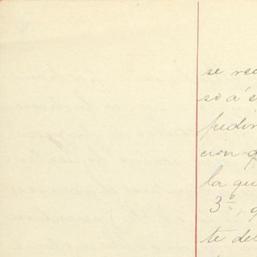 se re
so á e
pedir
cion q
la qu
3º, q
te de